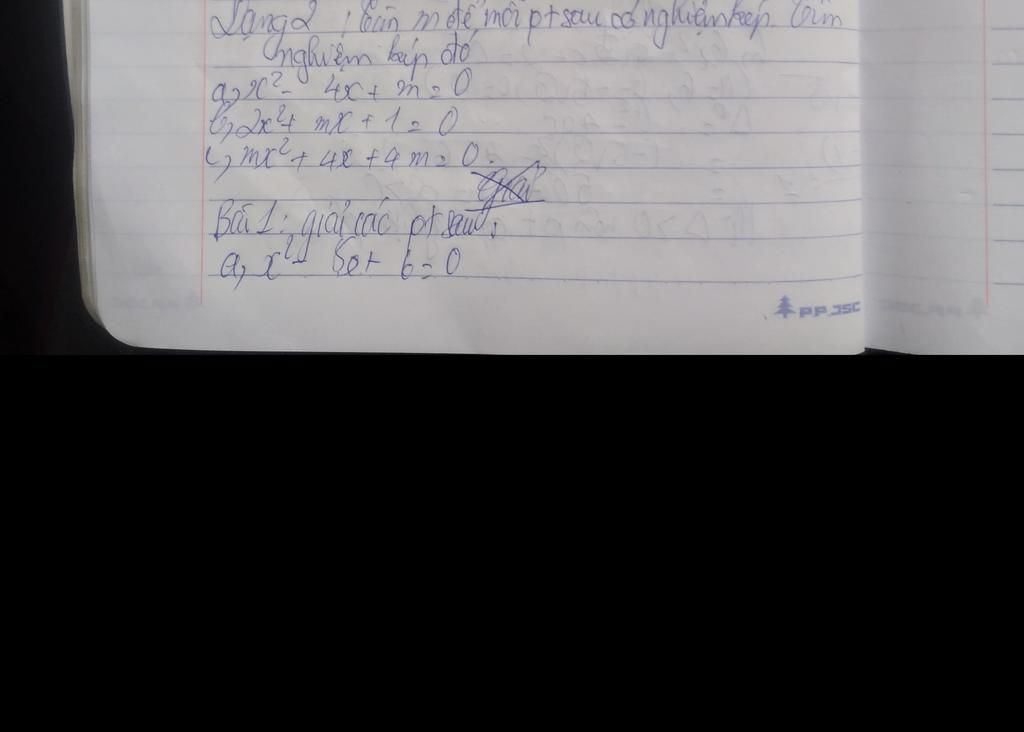 Dạng 2 : Tìm m để mỗi pt sau có nghiệm kép. Tìm
nghiệm kép đó
a, x² - 4x + m = 0
b, 2x² + mx + 1 = 0
c, mx² + 4x + 4m = 0.
giải
Bài 1: giải các pt sau:
a, x² - 5x + 6 = 0
PP.JSC